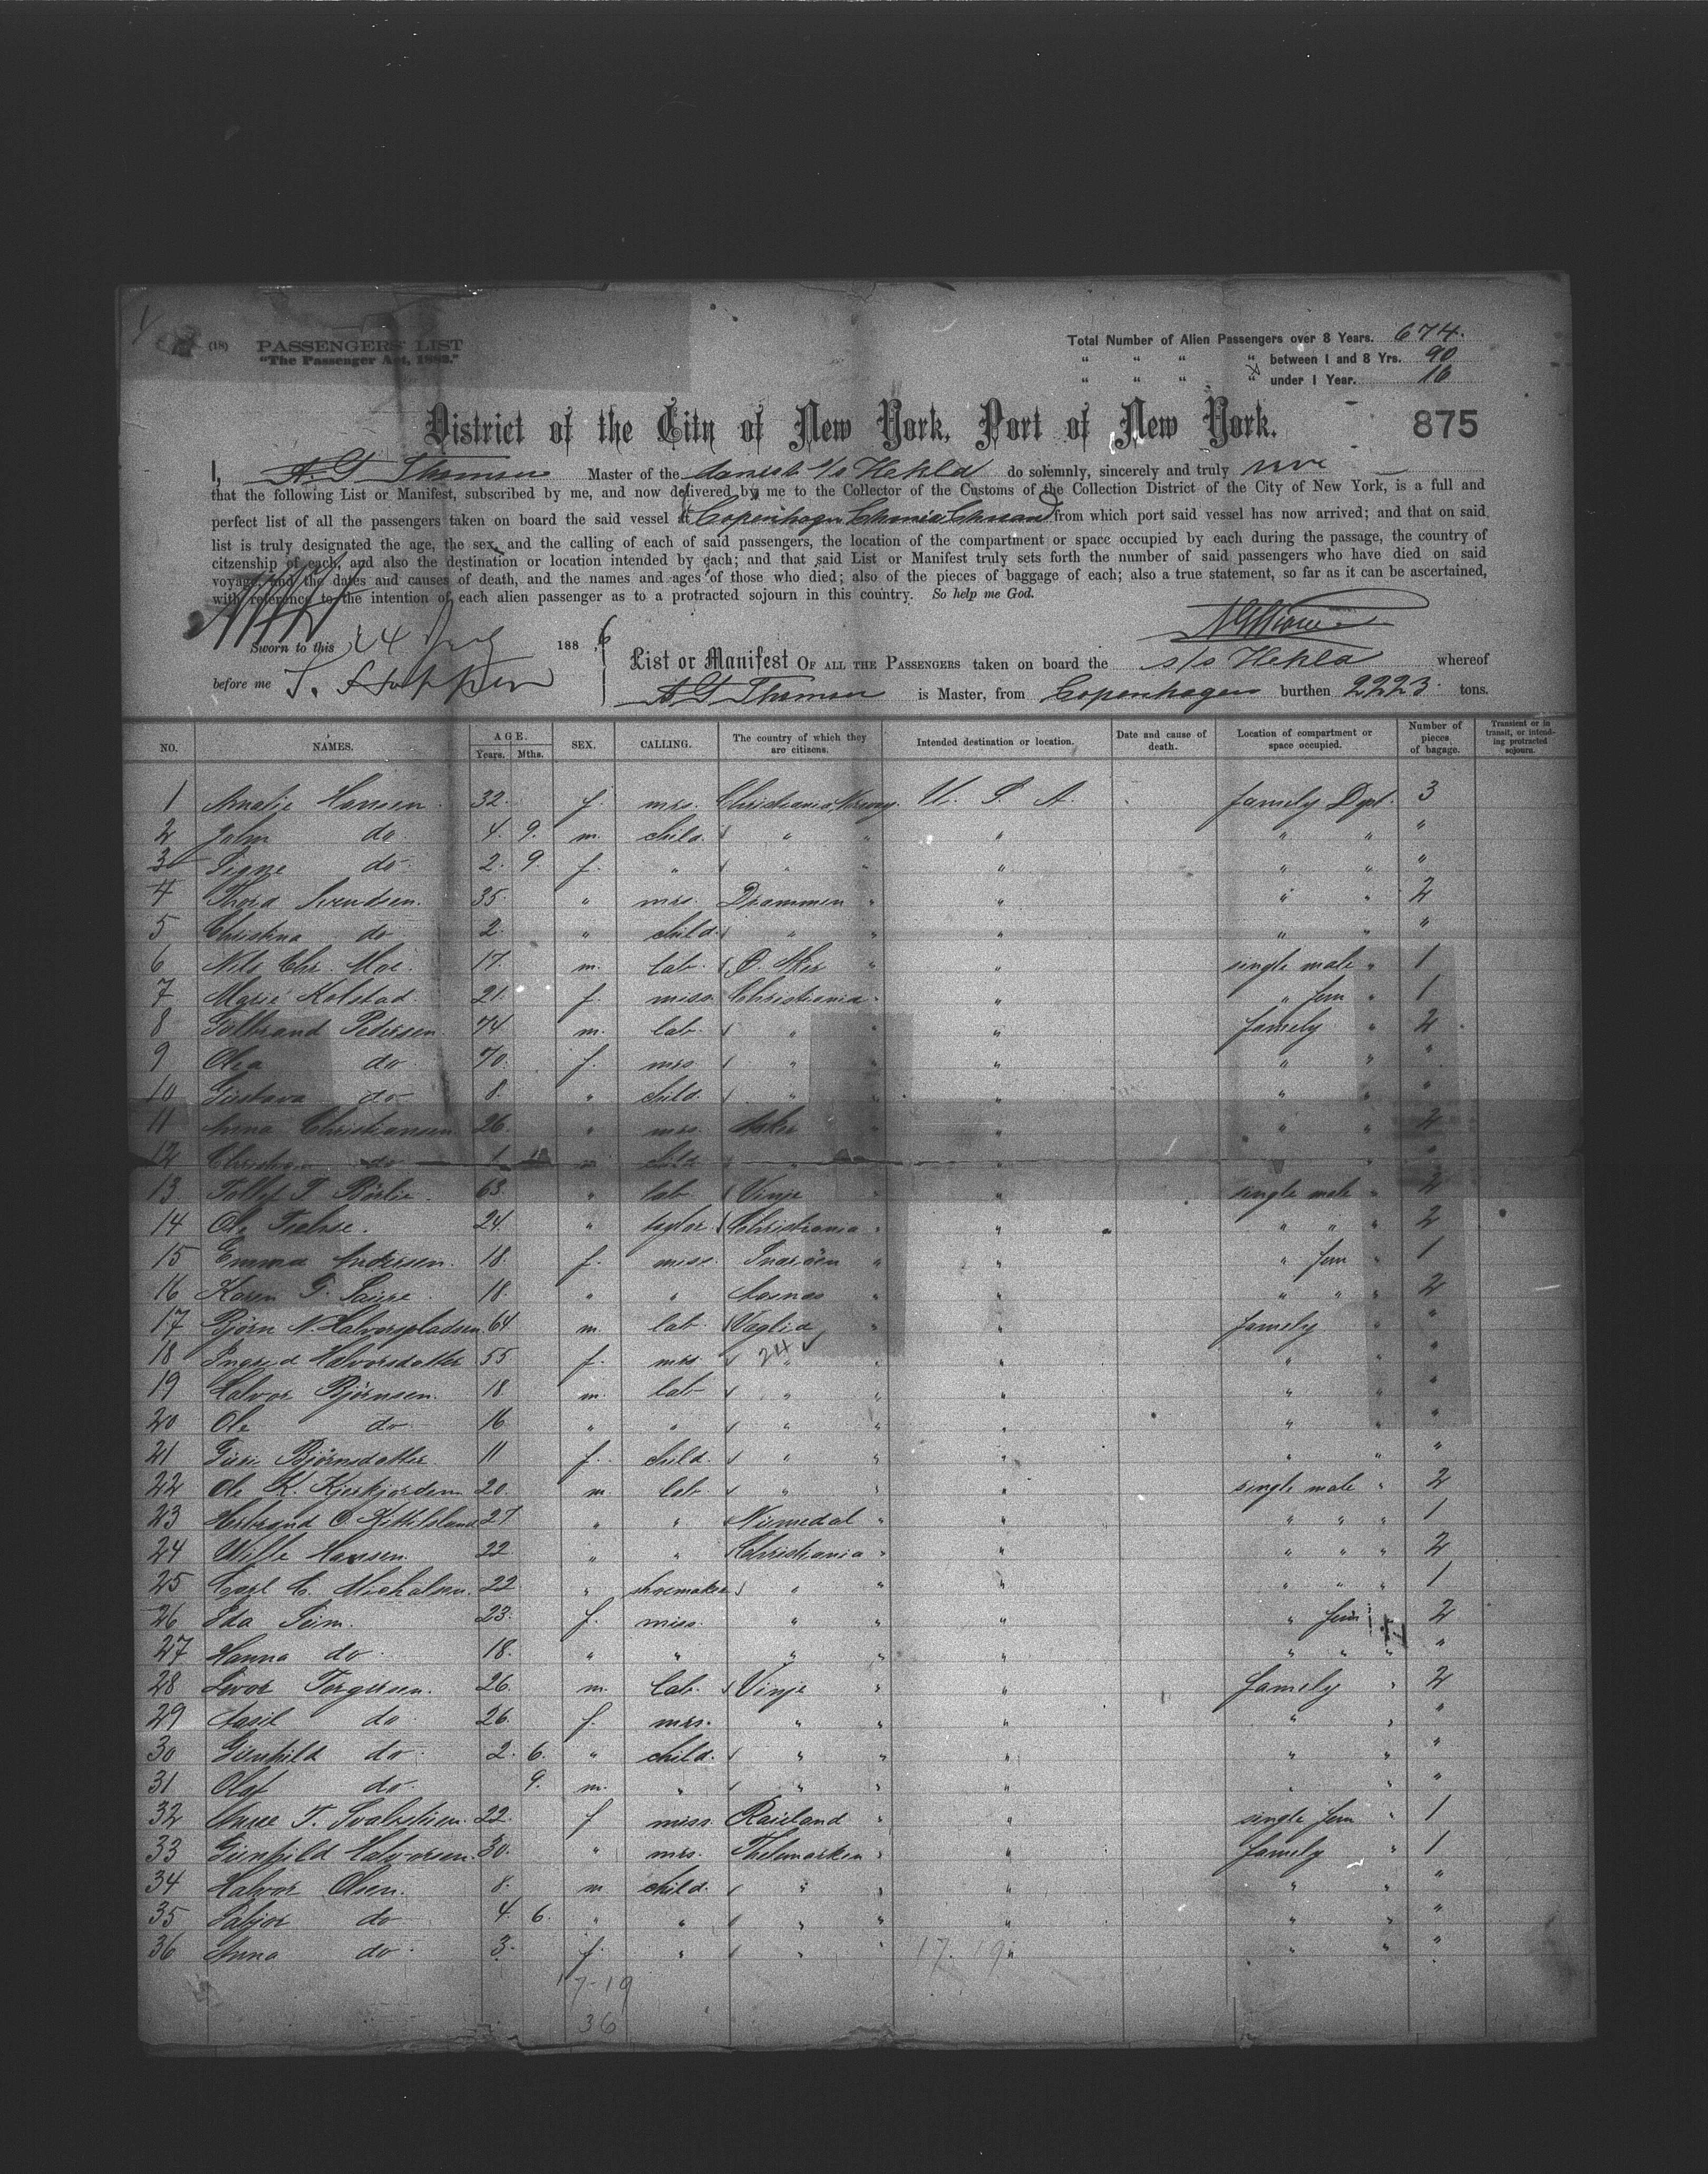 (18) PASSENGERS' LIST
"The Passenger Act, 1882."
Total Number of Alien Passengers over 8 Years. 674.
" " " " between 1 and 8 Yrs. 90
" " " " under 1 Year. 16
District of the City of New York, Port of New York. 875
I, A. G. Thomsen Master of the danish s/s Hekla do solemnly, sincerely and truly
that the following List or Manifest, subscribed by me, and now delivered by me to the Collector of the Customs of the Collection District of the City of New York, is a full and
perfect list of all the passengers taken on board the said vessel at Copenhagen from which port said vessel has now arrived; and that on said
list is truly designated the age, the sex, and the calling of each of said passengers, the location of the compartment or space occupied by each during the passage, the country of
citzenship of each, and also the destination or location intended by each; and that said List or Manifest truly sets forth the number of said passengers who have died on said
voyage, and the dates and causes of death, and the names and ages of those who died; also of the pieces of baggage of each; also a true statement, so far as it can be ascertained,
with reference to the intention of each alien passenger as to a protracted sojourn in this country. So help me God.
Sworn to this 24 188 6
before me
List or Manifest OF ALL THE PASSENGERS taken on board the s/s Hekla whereof
A G Thomsen is Master, from Copenhagen burthen 2223 tons.
NO. NAMES. AGE. Years. Mths. SEX. CALLING. The country of which they are citizens. Intended destination or location. Date and cause of death. Location of compartment or space occupied. Number of pieces of bagage. Transient or in transit, or intending protracted sojourn.
1 Amalie Hansen 32. f. mrs. Christiania Norway. U. S. A. famely Dpt. 3
2 John do 4. 9. m. child. " " " " " "
3 Signe do 2. 9. f. " " " " " " "
4 Thora Svendsen. 35. " mrs. Drammen " " " " 2
5 Christina do 2 " child. " " " " " "
6 Nils Chr. Moe. 17. m. lab. Ø. Aker " " single male " 1
7 Marie Kolstad. 21. f. miss. Christiania " " " fem " 1
8 Gulbrand Pedersen 74 m. lab. " " " famely " 2
9 Olea do 70. f. mrs " " " " " "
10 Gustava do 8. " child. " " " " " "
11 Anna Christiansen 26. " mrs. Asker " " " " 2
12 Christian do 1 child
13 Tollef T. 63. " lab Vinje " " single male "
14 Ole 24. " taylor. Christiania " " " " " 2
15 Emma Andersen. 18. f. miss. Snarøen " " " fem " 1
16 Karen G. 18. " " " " " " " 2
17 Bjørn N. Halvorspladsen 64 m. lab. " " famely " "
18 Ingrid Halvorsdatter 55 f. mrs " 24 " " " "
19 Halvor Bjørnsen. 18 m. lab " " " " " "
20 Ole do 16 " " " " " " " "
21 Guri Bjørnsdatter 11 f. child. " " " " " "
22 Ole K. 20. m lab. " " " single male " 2
23 Herbrand O. Kittilsland 27 " " Numedal " " " " " 1
24 Hansen. 22 " " Christiania " " " " " 2
25 Carl C. 22 " shoemaker " " " " " " 1
26 Ida Seim. 23. f. miss. " " " " fem 2
27 Hanna do 18. " " " " " " " " "
28 Levor Torgersen. 26. m. lab. Vinje " " famely " 2
29 Aasil do 26. f. mrs. " " " " " "
30 Gunhild do 2. 6. " child. " " " " " "
31 Olaf do 9. m. " " " " " " "
32 T. 22. f miss. " " single fem " 1
33 Gunhild Halvorsen. 30. " mrs. Thelemarken " " famely " 1
34 Halvor Olsen. 8. m child. " " " " " "
35 do 4. 6. " " " " " " " "
36 Anna do 3. f. " " " " " " "
17. 19
17-19
36